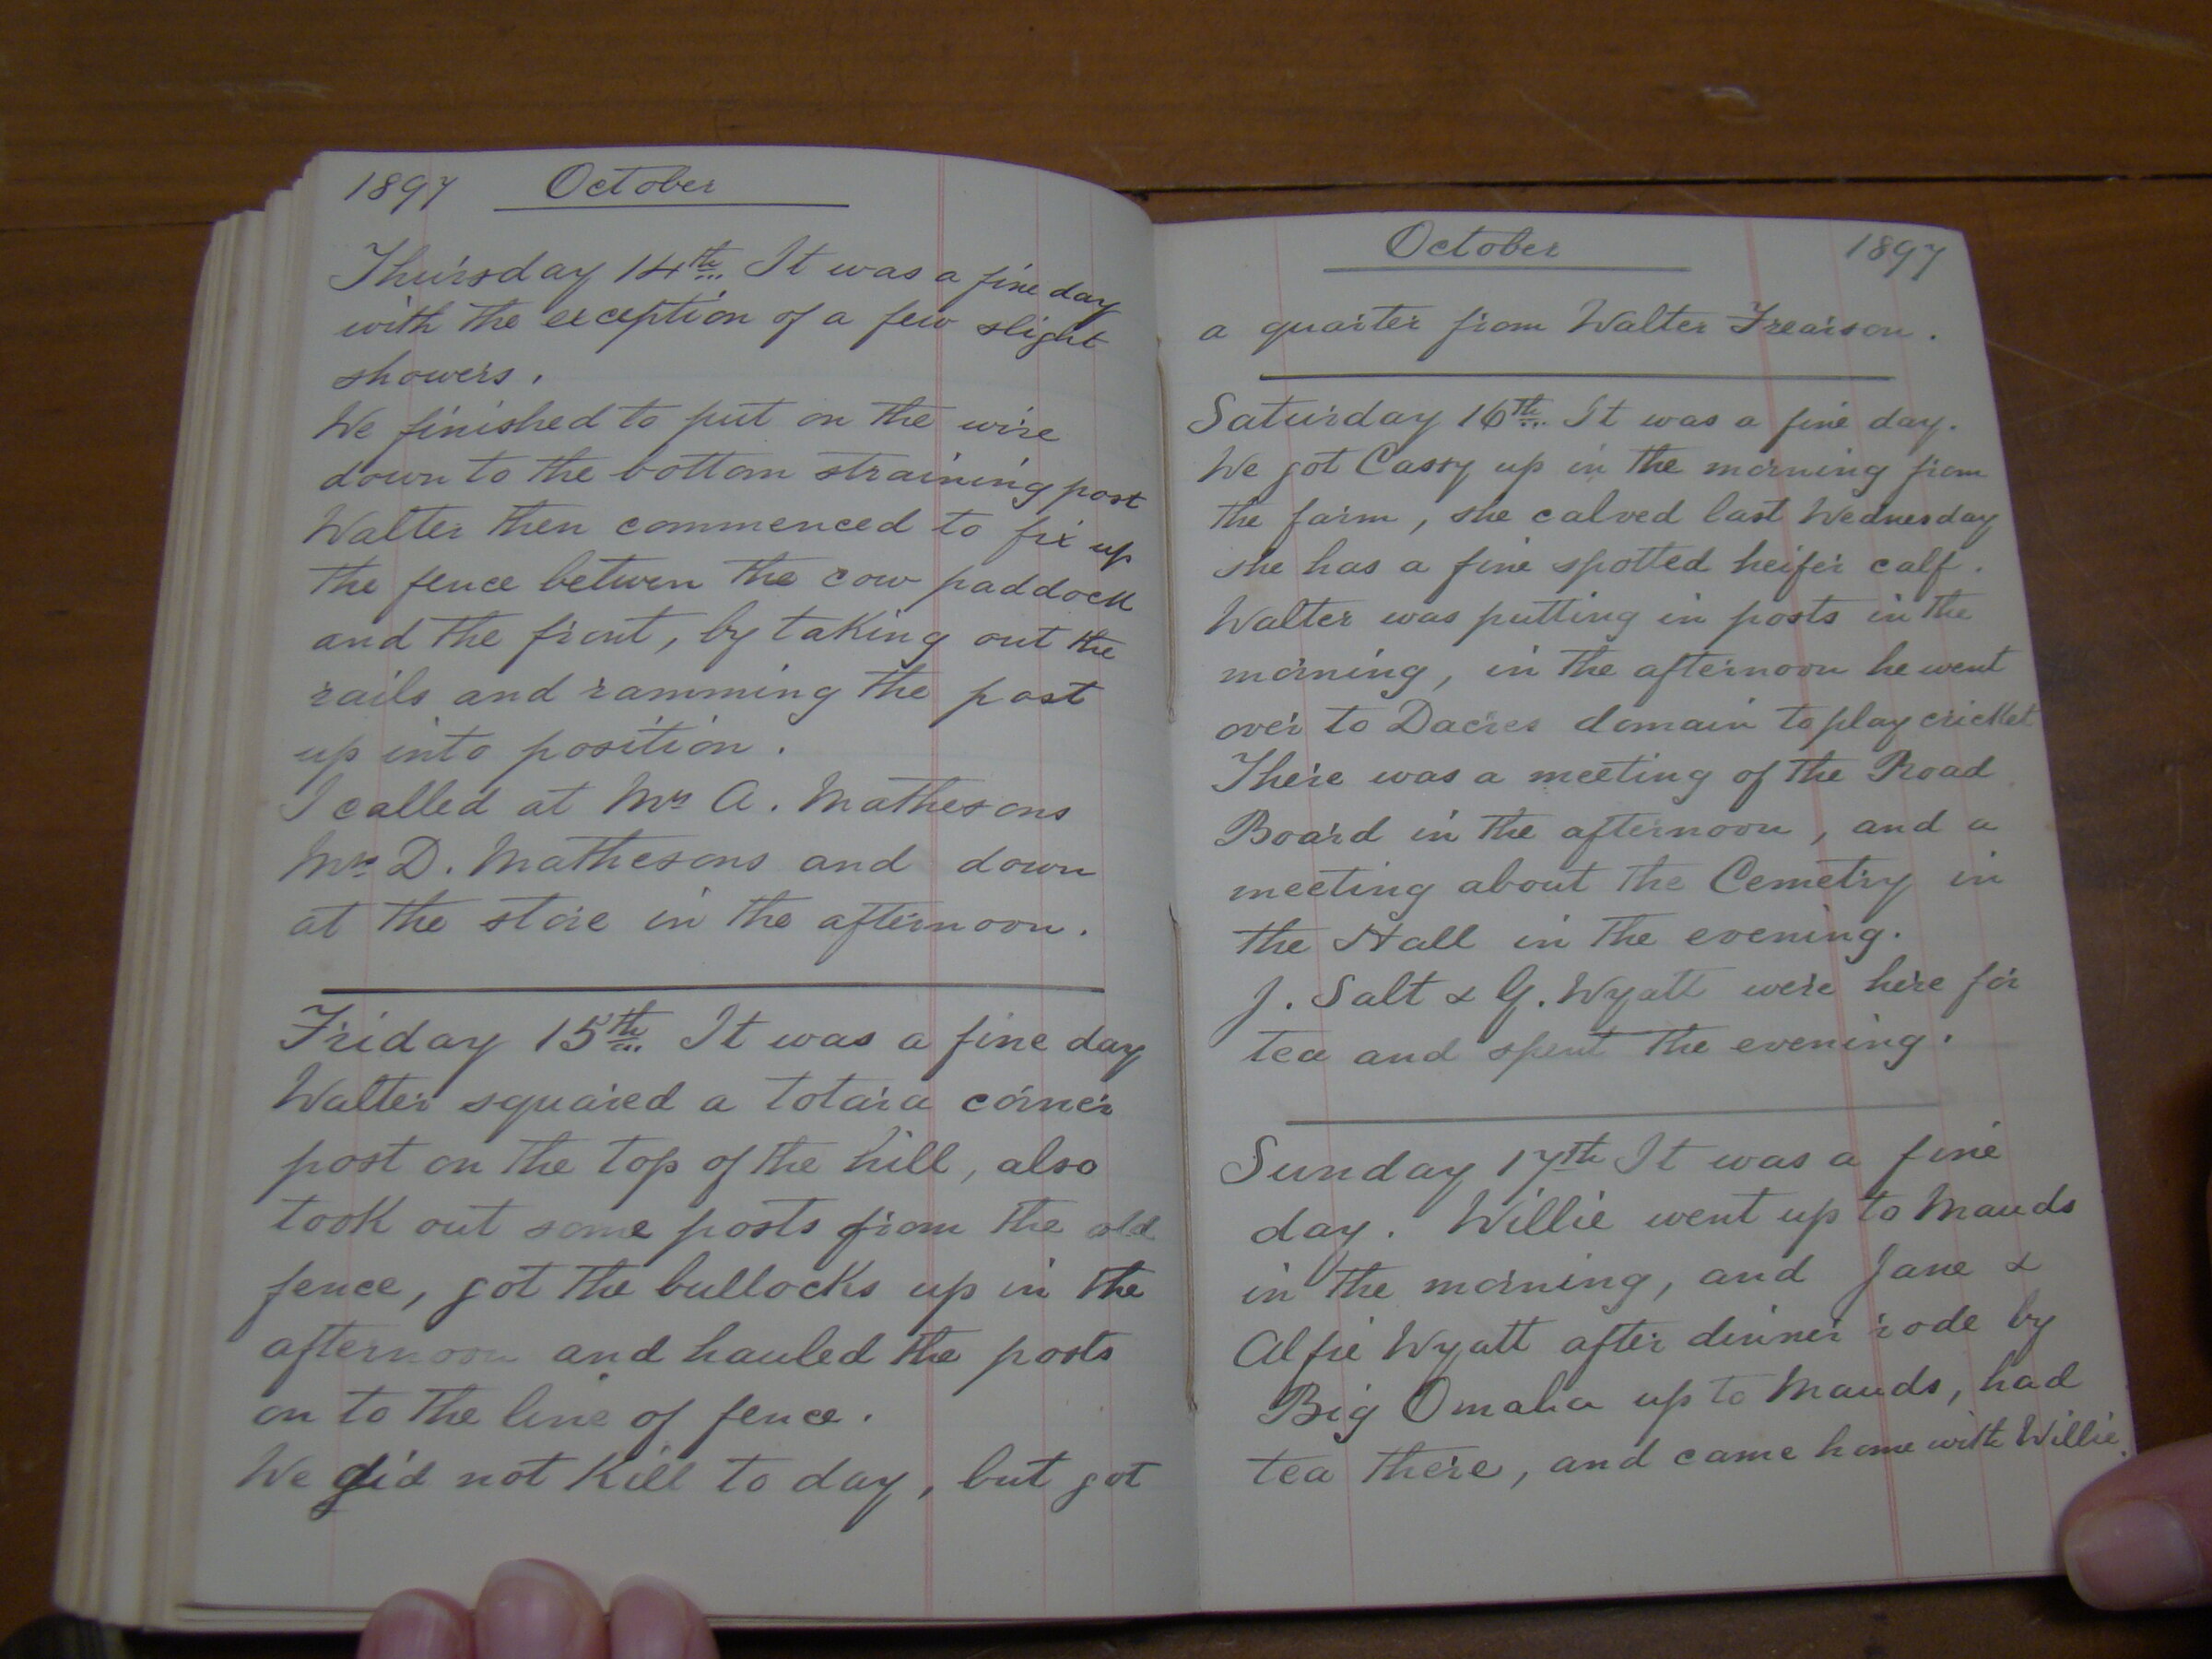 1897 October
Thursday 14th It was a fine day
with the exception of a few slight
showers.
We finished to put on the wire
down to the bottom straining post
Walter then commenced to fix up
the fence betwen the cow paddock
and the front, by taking out the
rails and ramming the post
up into position.
I called at Mrs A. Mathesons
Mrs D. Mathesons and down
at the store in the afternoon.
Friday 15th It was a fine day
Walter squared a totara corner
post on the top of the hill, also
took out some posts from the old
fence, got the bullocks up in the
afternoon and hauled the posts
on to the line of fence.
We did not kill to day, but got
October 1897
a quarter from Walter Frearson.
Saturday 16th It was a fine day.
We got Cassy up in the morning from
the farm, she calved last Wednesday
she has a fine spotted heifer calf.
Walter was putting in posts in the
morning, in the afternoon he went
over to Dacres domain to play cricket
There was a meeting of the Road
Board in the afternoon, and a
meeting about the Cemetry in
the Hall in the evening.
J. Salt & G. Wyatt were here for
tea and spent the evening.
Sunday 17th It was a fine
day. Willie went up to Mauds
in the morning, and Jane &
Alfie Wyatt after dinner rode by
Big Omaha up to Mauds, had
tea there, and came home with Willie.